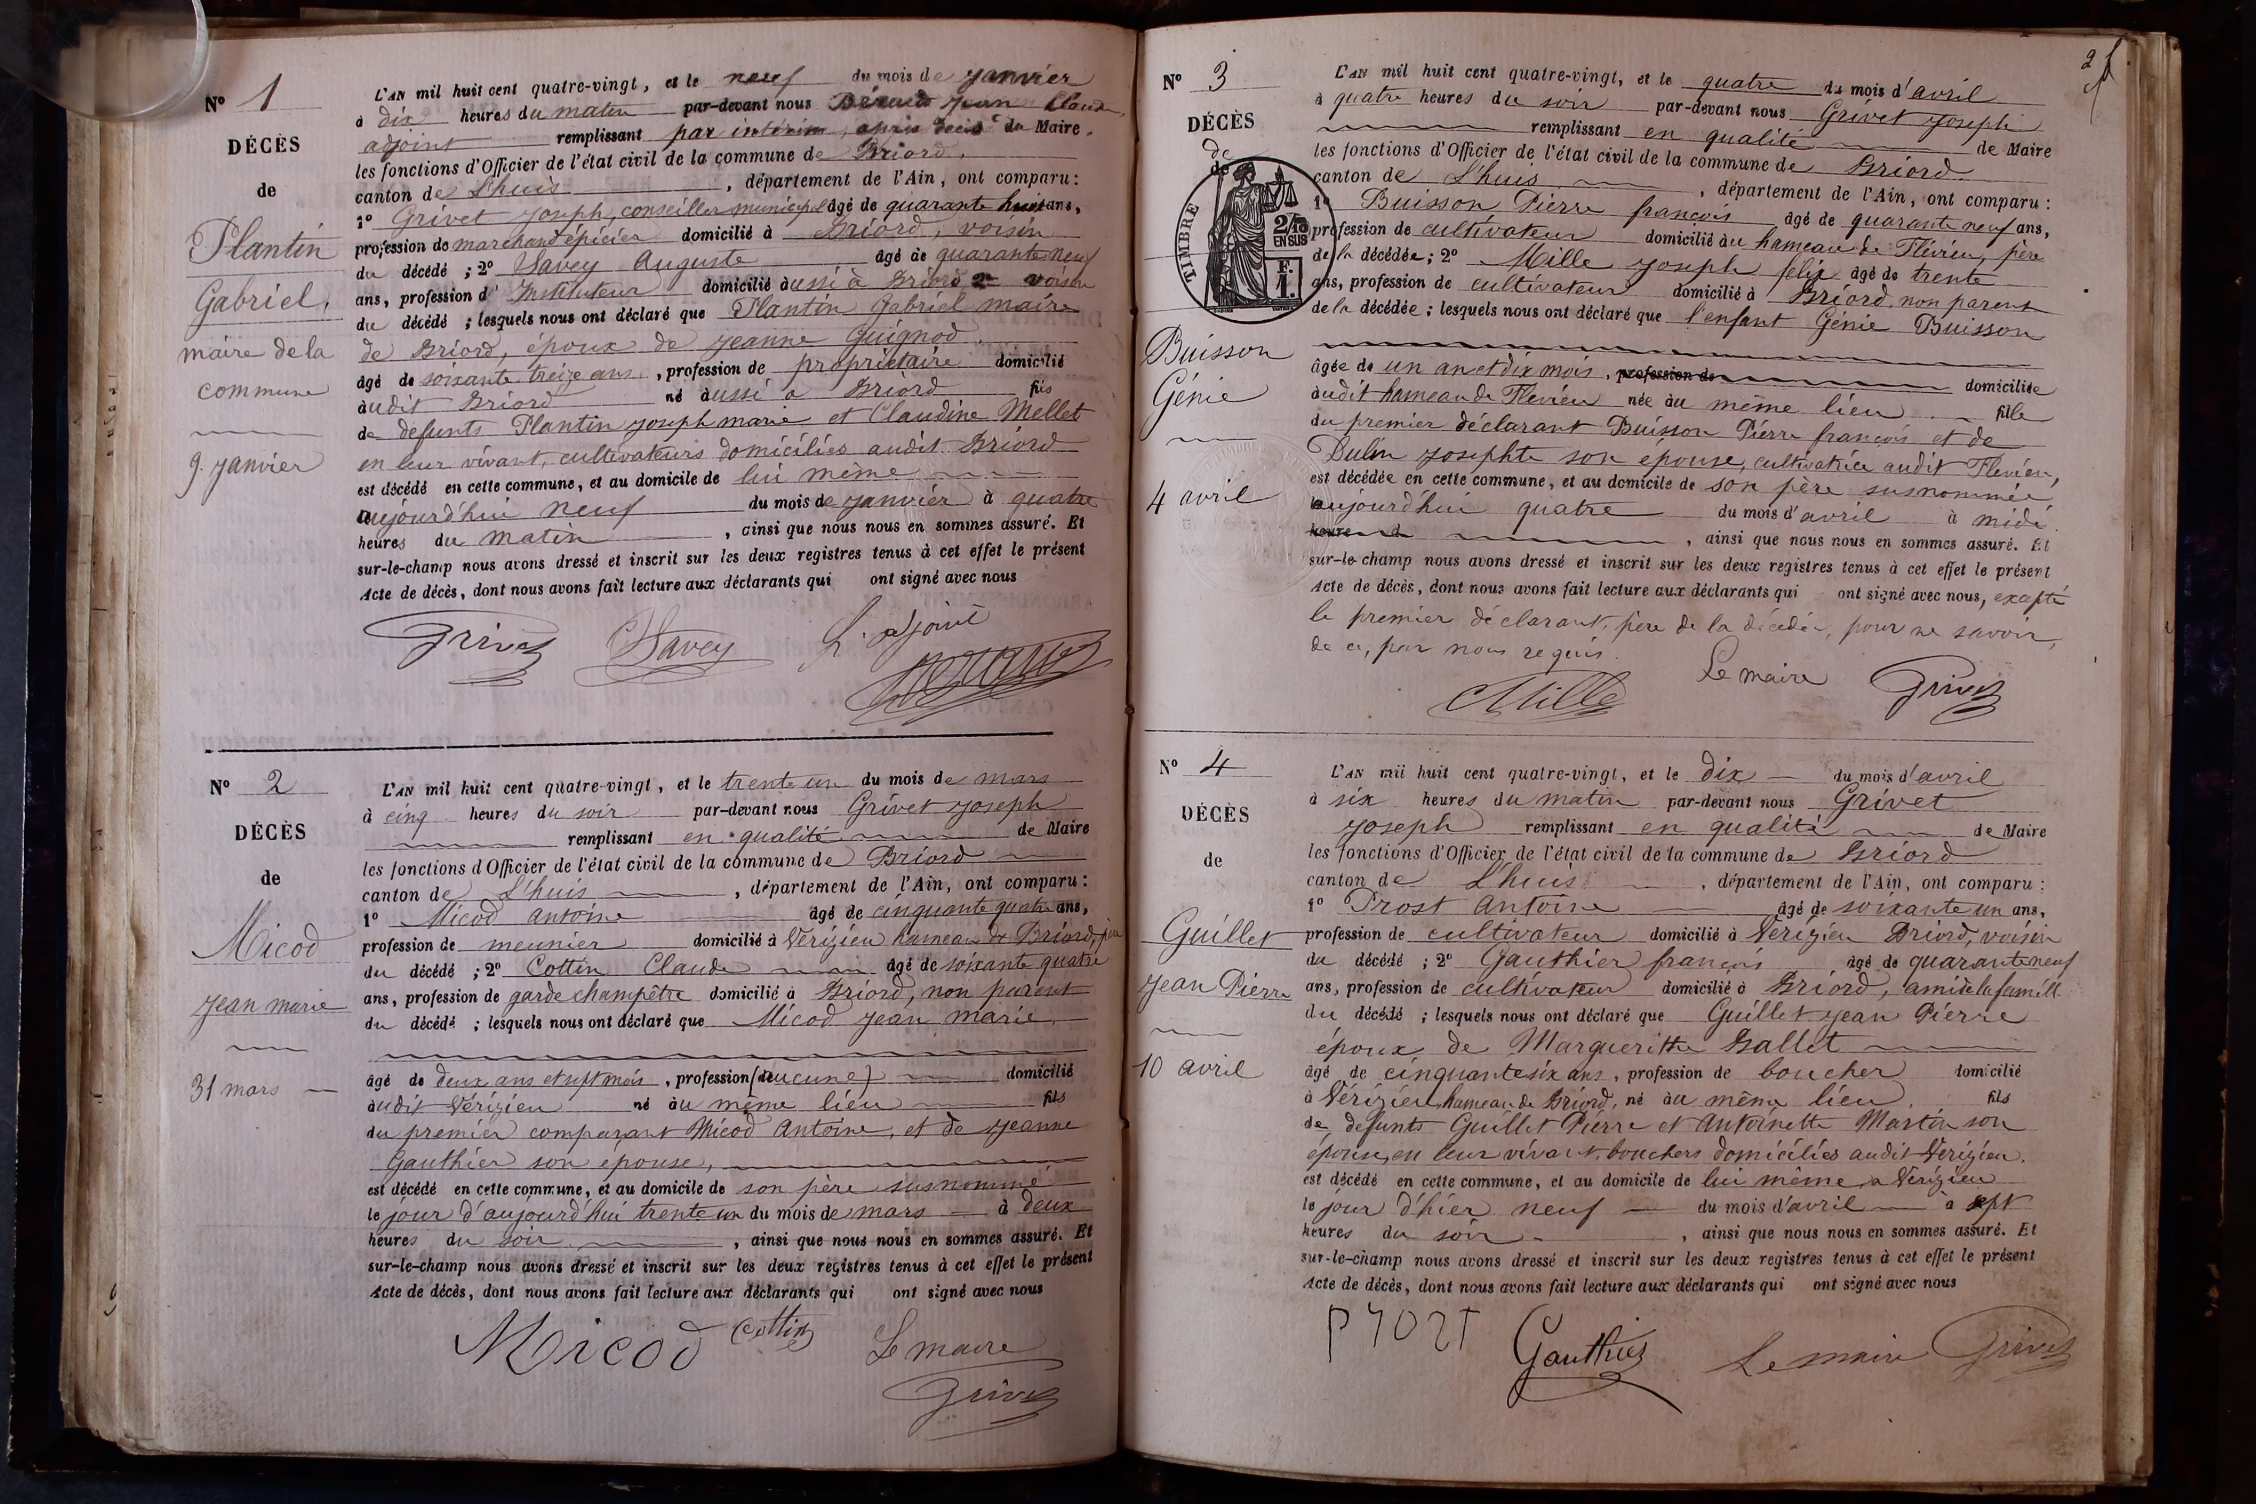 N° 1
DÉCÈS
de
Plantin
Gabriel,
maire de la
commune
9 janvier
L'AN mil huit cent quatre-vingt, et le neuf du mois de janvier
à dix heures du matin par-devant nous Béraud Jean Claude,
adjoint remplissant par intérim, après décès du Maire,
les fonctions d'Officier de l'état civil de la commune de Briord,
canton de L'huis, département de l'Ain, ont comparu:
1° Grivet Joseph, conseiller municipal âgé de quarante huit ans,
profession de marchand épicier domicilié à Briord, voisin
du décédé; 2° Savey Auguste âgé de quarante neuf
ans, profession d'Instituteur domicilié aussi à Briord voisin
du décédé; lesquels nous ont déclaré que Plantin Gabriel maire
de Briord, époux de Jeanne Guignod
âgé de soixante treize ans, profession de propriétaire domicilié
audit Briord né aussi à Briord fils
de defunts Plantin Joseph marie et Claudine Mellet
en leur vivant, cultivateurs domiciliés audit Briord
est décédé en cette commune, et au domicile de lui même
aujourd'hui neuf du mois de janvier à quatre
heures du matin, ainsi que nous nous en sommes assuré. Et
sur-le-champ nous avons dressé et inscrit sur les deux registres tenus à cet effet le présent
Acte de décès, dont nous avons fait lecture aux déclarants qui ont signé avec nous
Grivet Savey L'adjoint
N° 2
DÉCÈS
de
Micod
Jean marie
31 mars
L'AN mil huit cent quatre-vingt, et le trente un du mois de mars
à cinq heures du soir par-devant nous Grivet Joseph
remplissant en qualité de Maire
les fonctions d'Officier de l'état civil de la commune de Briord
canton de L'huis, département de l'Ain, ont comparu:
1° Micod Antoine âgé de cinquante quatre ans,
profession de meunier domicilié à Vérizieu hameau de Briord, père
du décédé; 2° Cottin Claude âgé de soixante quatre
ans, profession de garde champêtre domicilié à Briord, non parent
du décédé; lesquels nous ont déclaré que Micod Jean marie,
âgé de deux ans et sept mois, profession (aucune) domicilié
audit Vérizieu né au même lieu fils
du premier comparant Micod Antoine, et de Jeanne
Gauthier son épouse,
est décédé en cette commune, et au domicile de son père susnommé
le jour d'aujourd'hui trente un du mois de mars à deux
heures du soir, ainsi que nous nous en sommes assuré. Et
sur-le-champ nous avons dressé et inscrit sur les deux registres tenus à cet effet le présent
Acte de décès, dont nous avons fait lecture aux déclarants qui ont signé avec nous
Micod Cottin Le maire
Grivet
2
N° 3
DÉCÈS
de
de
TIMBRE
2/10
EN SUS
F.
1.
Buisson
Génie
4 avril
L'AN mil huit cent quatre-vingt, et le quatre du mois d'avril
à quatre heures du soir par-devant nous Grivet Joseph
remplissant en qualité de Maire
les fonctions d'Officier de l'état civil de la commune de Briord
canton de L'huis, département de l'Ain, ont comparu:
1° Buisson Pierre françois âgé de quarante neuf ans,
profession de cultivateur domicilié au hameau de Flévieu, père
de la décédée; 2° Mille Joseph felix âgé de trente
ans, profession de cultivateur domicilié à Briord, non parent
de la décédée; lesquels nous ont déclaré que l'enfant Génie Buisson
âgée de un an et dix mois, profession de domiciliée
audit hameau de Flévieu née au même lieu fille
du premier déclarant Buisson Pierre françois et de
Dulin Josephte son épouse, cultivatrice audit Flévieu,
est décédée en cette commune, et au domicile de son père susnommée
aujourd'hui quatre du mois d'avril à midi
heure d, ainsi que nous nous en sommes assuré. Et
sur-le-champ nous avons dressé et inscrit sur les deux registres tenus à cet effet le présent
Acte de décès, dont nous avons fait lecture aux déclarants qui ont signé avec nous, excepté
le premier déclarant, père de la décédée, pour ne savoir,
de ce, par nous requis.
Mille Le maire Grivet
N° 4
DÉCÈS
de
Guillet
Jean Pierre
10 avril
L'AN mil huit cent quatre-vingt, et le dix du mois d'avril
à six heures du matin par-devant nous Grivet
Joseph remplissant en qualité de Maire
les fonctions d'Officier de l'état civil de la commune de Briord
canton de L'huis, département de l'Ain, ont comparu:
1° Prost Antoine âgé de soixante un ans,
profession de cultivateur domicilié à Vérizieu Briord, voisin
du décédé; 2° Gauthier françois âgé de quarante neuf
ans, profession de cultivateur domicilié à Briord, ami de la famille
du décédé; lesquels nous ont déclaré que Guillet Jean Pierre
époux de Margueritte Ballet
âgé de cinquante six ans, profession de boucher domicilié
à Vérizieu, hameau de Briord, né au même lieu. fils
de defunts Guillet Pierre et Antoinette Martin son
épouse, en leur vivant, bouchers domiciliés audit Vérizieu.
est décédé en cette commune, et au domicile de lui même, à Vérizieu
le jour d'hier neuf du mois d'avril à sept
heures du soir, ainsi que nous nous en sommes assuré. Et
sur-le-champ nous avons dressé et inscrit sur les deux registres tenus à cet effet le présent
Acte de décès, dont nous avons fait lecture aux déclarants qui ont signé avec nous
Prost Gauthier Le maire Grivet